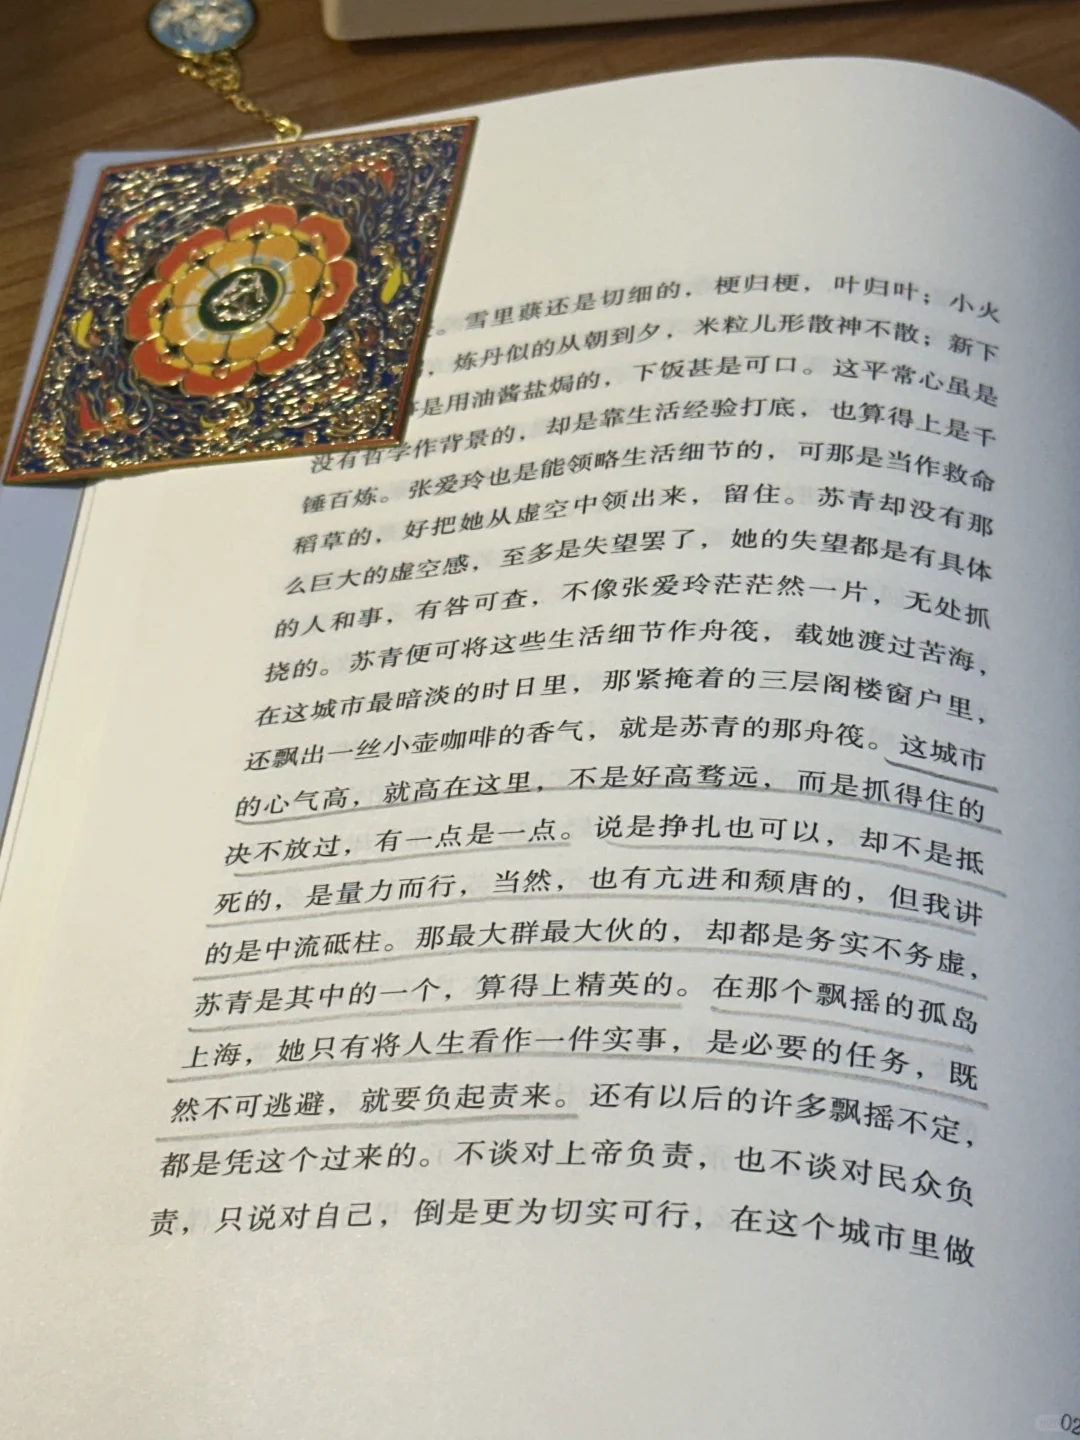 。雪里蕻还是切细的，梗归梗，叶归叶；小火
，炼丹似的从朝到夕，米粒儿形散神不散；新下
是用油酱盐焗的，下饭甚是可口。这平常心虽是
没有哲学作背景的，却是靠生活经验打底，也算得上是千
锤百炼。张爱玲也是能领略生活细节的，可那是当作救命
稻草的，好把她从虚空中领出来，留住。苏青却没有那
么巨大的虚空感，至多是失望罢了，她的失望都是有具体
的人和事，有咎可查，不像张爱玲茫茫然一片，无处抓
挠的。苏青便可将这些生活细节作舟筏，载她渡过苦海，
在这城市最暗淡的时日里，那紧掩着的三层阁楼窗户里，
还飘出一丝小壶咖啡的香气，就是苏青的那舟筏。这城市
的心气高，就高在这里，不是好高骛远，而是抓得住的
决不放过，有一点是一点。说是挣扎也可以，却不是抵
死的，是量力而行，当然，也有亢进和颓唐的，但我讲
的是中流砥柱。那最大群最大伙的，却都是务实不务虚，
苏青是其中的一个，算得上精英的。在那个飘摇的孤岛
上海，她只有将人生看作一件实事，是必要的任务，既
然不可逃避，就要负起责来。还有以后的许多飘摇不定，
都是凭这个过来的。不谈对上帝负责，也不谈对民众负
责，只说对自己，倒是更为切实可行，在这个城市里做